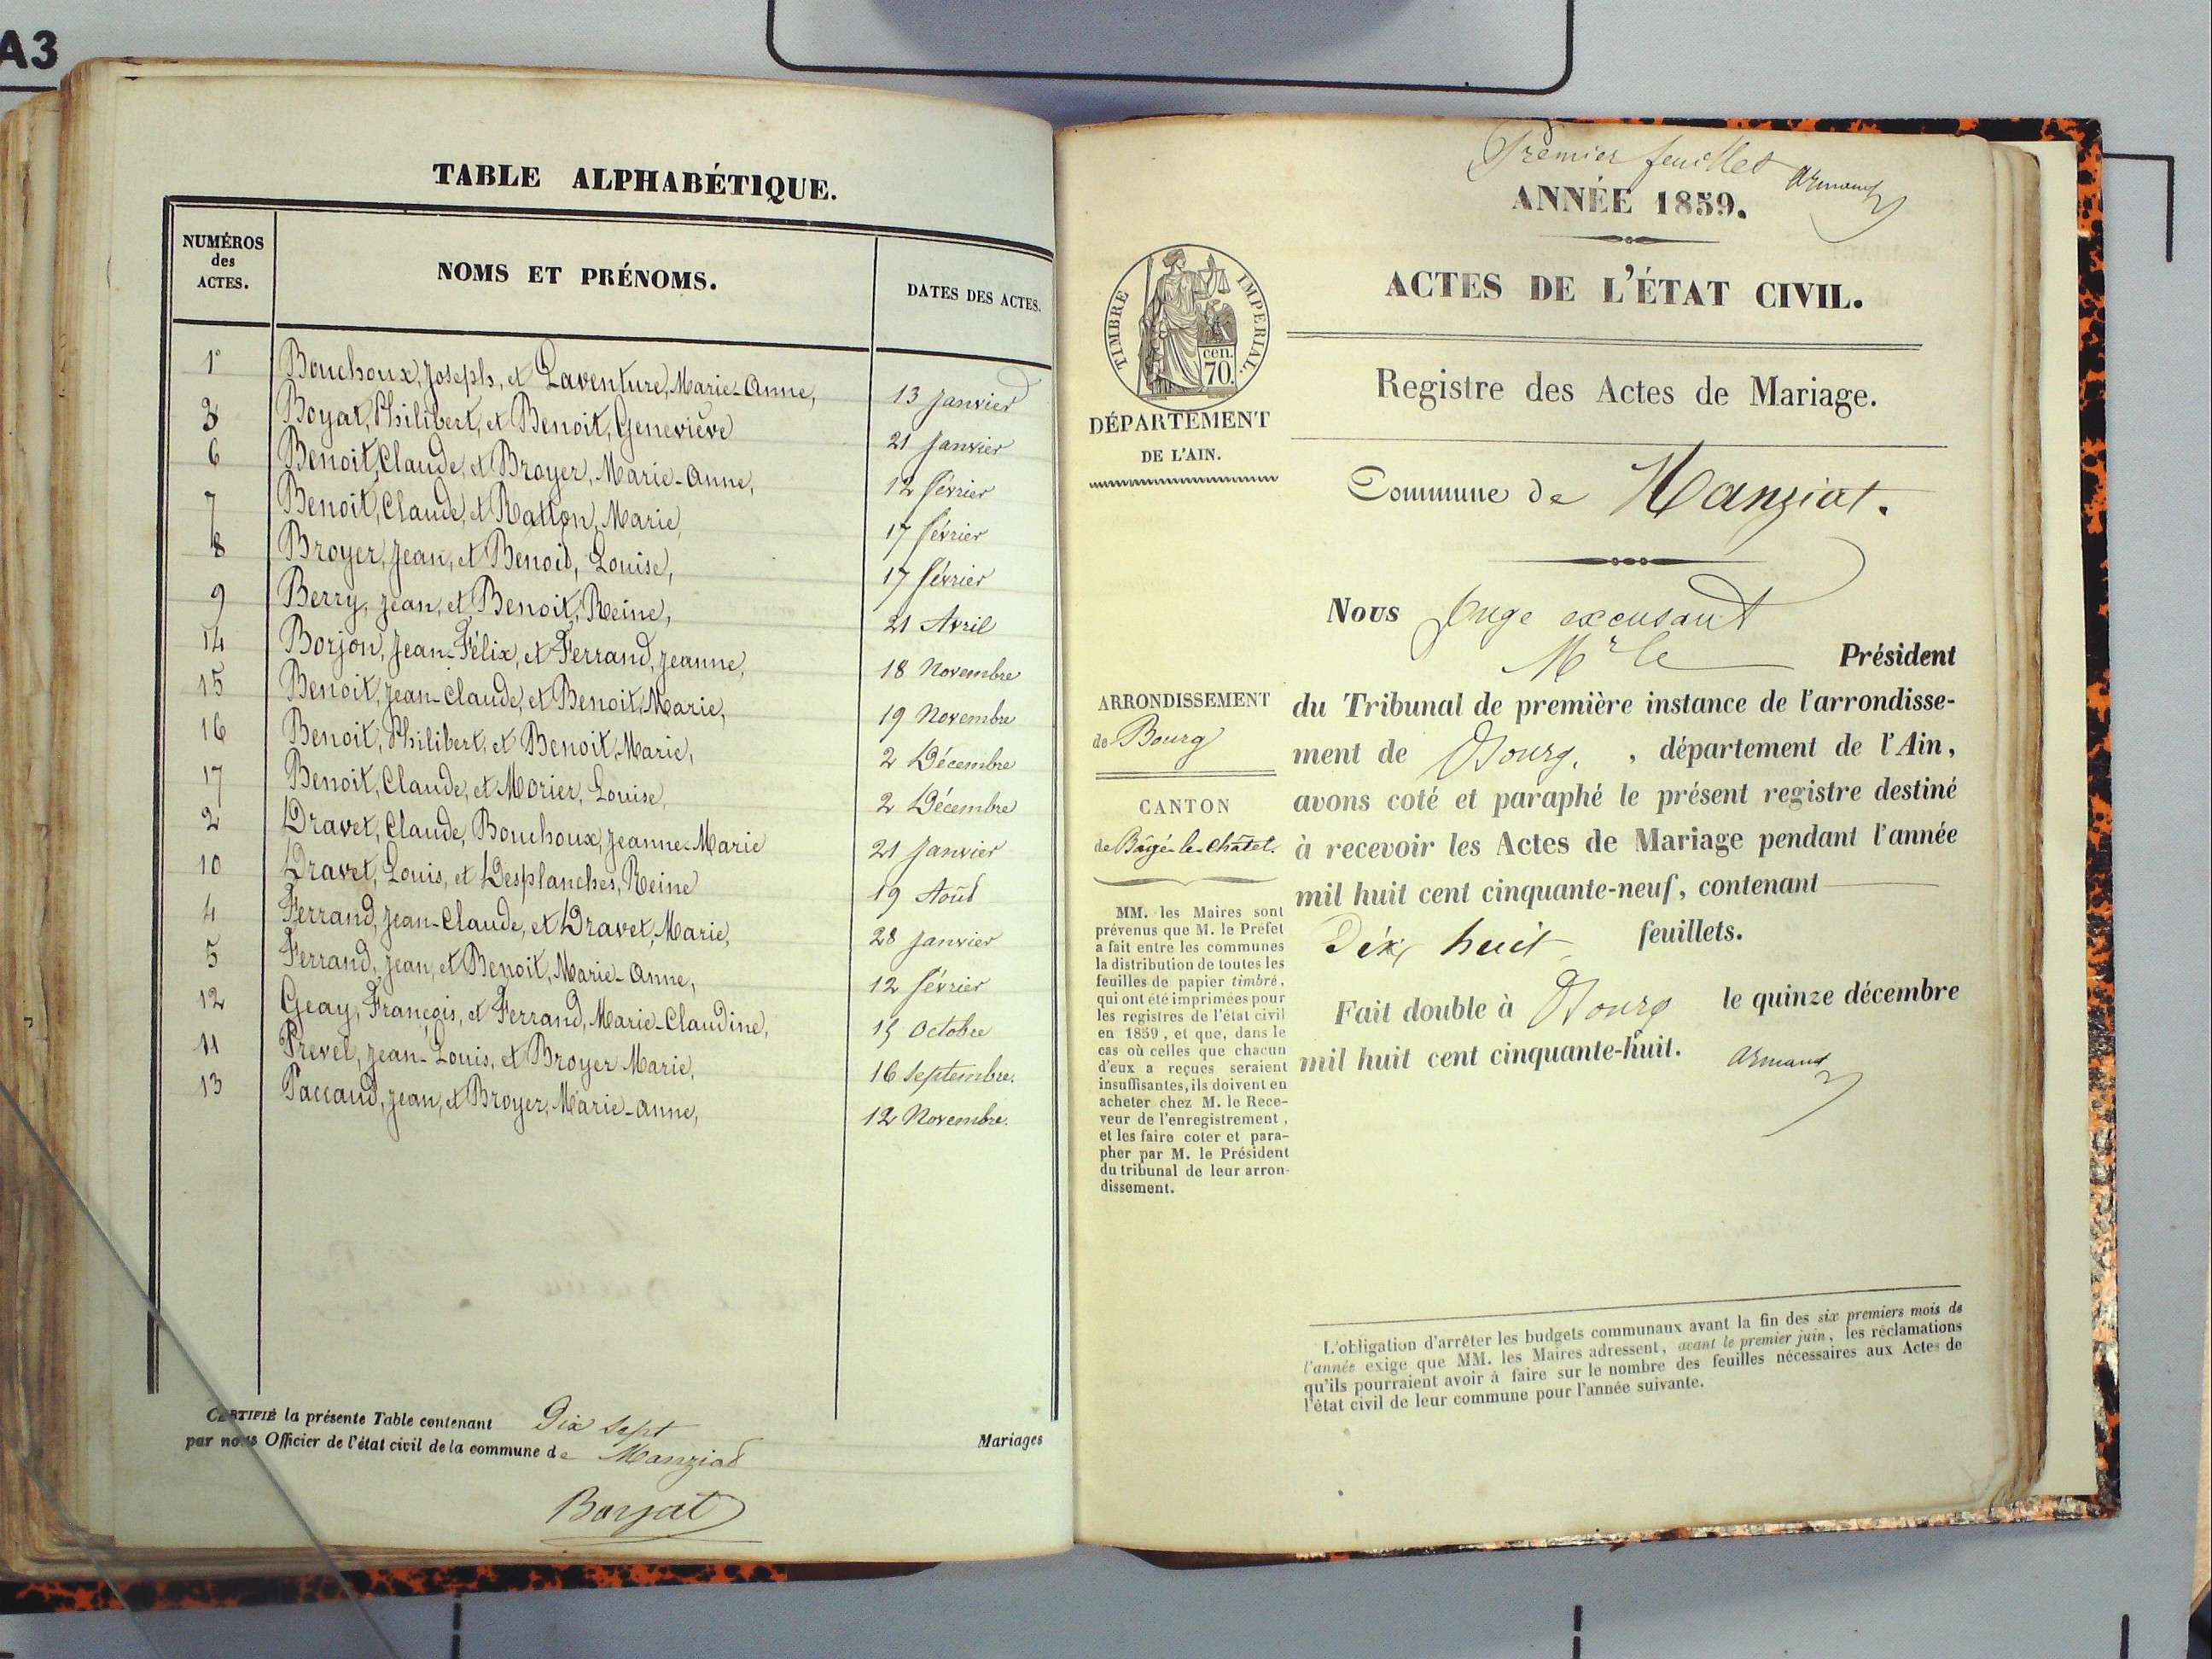 A3
TABLE ALPHABÉTIQUE.
NUMÉROS des ACTES. NOMS ET PRÉNOMS. DATES DES ACTES.
1er Bouchoux, Joseph, et Laventure, Marie-Anne, 13 Janvier
3 Boyat, Philibert, et Benoit, Geneviève 21 Janvier
6 Benoit, Claude, et Broyer, Marie-Anne, 12 février
7 Benoit, Claude, et Ratton, Marie, 17 février
8 Broyer, Jean, et Benoit, Louise, 17 février
9 Berry, Jean, et Benoit, Reine, 21 Avril
14 Borjon, Jean-Félix, et Ferrand, Jeanne, 18 Novembre
15 Benoit, Jean-Claude, et Benoit, Marie, 19 Novembre
16 Benoit, Philibert, et Benoit, Marie, 2 Décembre
17 Benoit, Claude, et Morier, Louise, 2 Décembre
2 Dravet, Claude, Bouchoux, Jeanne-Marie 21 Janvier
10 Dravet, Louis, et Desplanches, Reine 19 Août
4 Ferrand, Jean-Claude, et Dravet, Marie, 28 Janvier
5 Ferrand, Jean, et Benoit, Marie-Anne, 12 février
12 Geay, François, et Ferrand, Marie-Claudine, 15 Octobre
11 Prevel, Jean-Louis, et Broyer Marie, 16 Septembre.
13 Paccaud, Jean, et Broyer, Marie-Anne, 12 Novembre.
CERTIFIÉ la présente Table contenant Dix sept Mariages
par nous Officier de l'état civil de la commune de Manziat
Premier feuillet Armand
ANNÉE 1859.
ACTES DE L'ÉTAT CIVIL.
TIMBRE IMPÉRIAL.
cen.
70.
Registre des Actes de Mariage.
DÉPARTEMENT
DE L'AIN.
Commune de Manziat.
Nous Juge excusant
Mr le Président
ARRONDISSEMENT
de Bourg
CANTON
de Bâgé-le-Châtel.
du Tribunal de première instance de l'arrondisse-
ment de Bourg, , département de l'Ain,
avons coté et paraphé le présent registre destiné
à recevoir les Actes de Mariage pendant l'année
mil huit cent cinquante-neuf, contenant
Dix huit feuillets.
Fait double à Bourg le quinze décembre
mil huit cent cinquante-huit. Armand
MM. les Maires sont
prévenus que M. le Préfet
a fait entre les communes
la distribution de toutes les
feuilles de papier timbré,
qui ont été imprimées pour
les registres de l'état civil
en 1859, et que, dans le
cas où celles que chacun
d'eux a reçues seraient
insuffisantes, ils doivent en
acheter chez M. le Rece-
veur de l'enregistrement,
et les faire coter et para-
pher par M. le Président
du tribunal de leur arron-
dissement.
L'obligation d'arrêter les budgets communaux avant la fin des six premiers mois de
l'année exige que MM. les Maires adressent, avant le premier juin, les réclamations
qu'ils pourraient avoir à faire sur le nombre des feuilles nécessaires aux Actes de
l'état civil de leur commune pour l'année suivante.